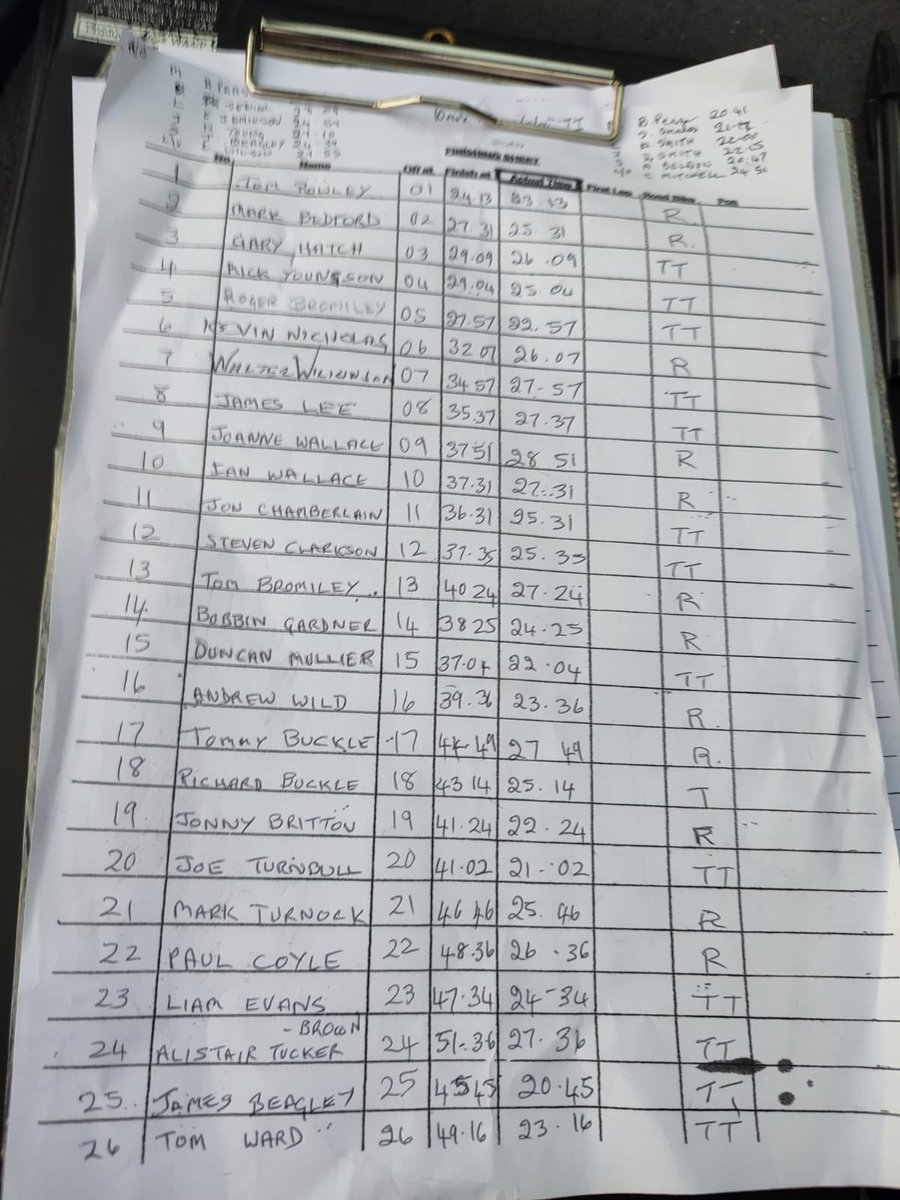 B Perry 20.41
SMITH 22-00
SMITH 22-15
MITCHELL 24-50
FINISHING SHEET
No. Name Off at Finish at Actual Time First Leg Road Bike Pos
1 TOM ROWLEY 01 24.13 23.13 R
2 MARK BEDFORD 02 27.31 25.31 R.
3 GARY HATCH 03 29.09 26.09 TT
4 MICK YOUNGSON 04 29.04 25.04 TT
5 ROGER BROMILEY 05 27.57 22.57 TT
6 KEVIN NICHOLAS 06 32 07 26.07 R
7 WALTER WILKINSON 07 34 57 27-57 TT
8 JAMES LEE 08 35.37 27.37 TT
9 JOANNE WALLACE 09 37 51 28 51 R
10 IAN WALLACE 10 37.31 27.31 R
11 JON CHAMBERLAIN 11 36.31 25.31 TT
12 STEVEN CLARKSON 12 37.35 25.35 TT
13 TOM BROMILEY 13 40 24 27-24 R
14 BOBBIN GARDNER 14 38 25 24-25 R
15 DUNCAN MULLIER 15 37.04 22.04 TT
16 ANDREW WILD 16 39.36 23.36 R.
17 TOMMY BUCKLE 17 44.49 27 49 R.
18 RICHARD BUCKLE 18 43 14 25.14 T
19 JONNY BRITTON 19 41.24 22.24 R
20 JOE TURNBULL 20 41.02 21-02 TT
21 MARK TURNOCK 21 46 46 25.46 R
22 PAUL COYLE 22 48.36 26.36 R
23 LIAM EVANS 23 47.34 24-34 TT
- BROWN
24 ALISTAIR TUCKER 24 51.36 27.36 TT
25 JAMES BEAGLEY 25 45 45 20.45 TT
26 TOM WARD 26 49.16 23.16 TT